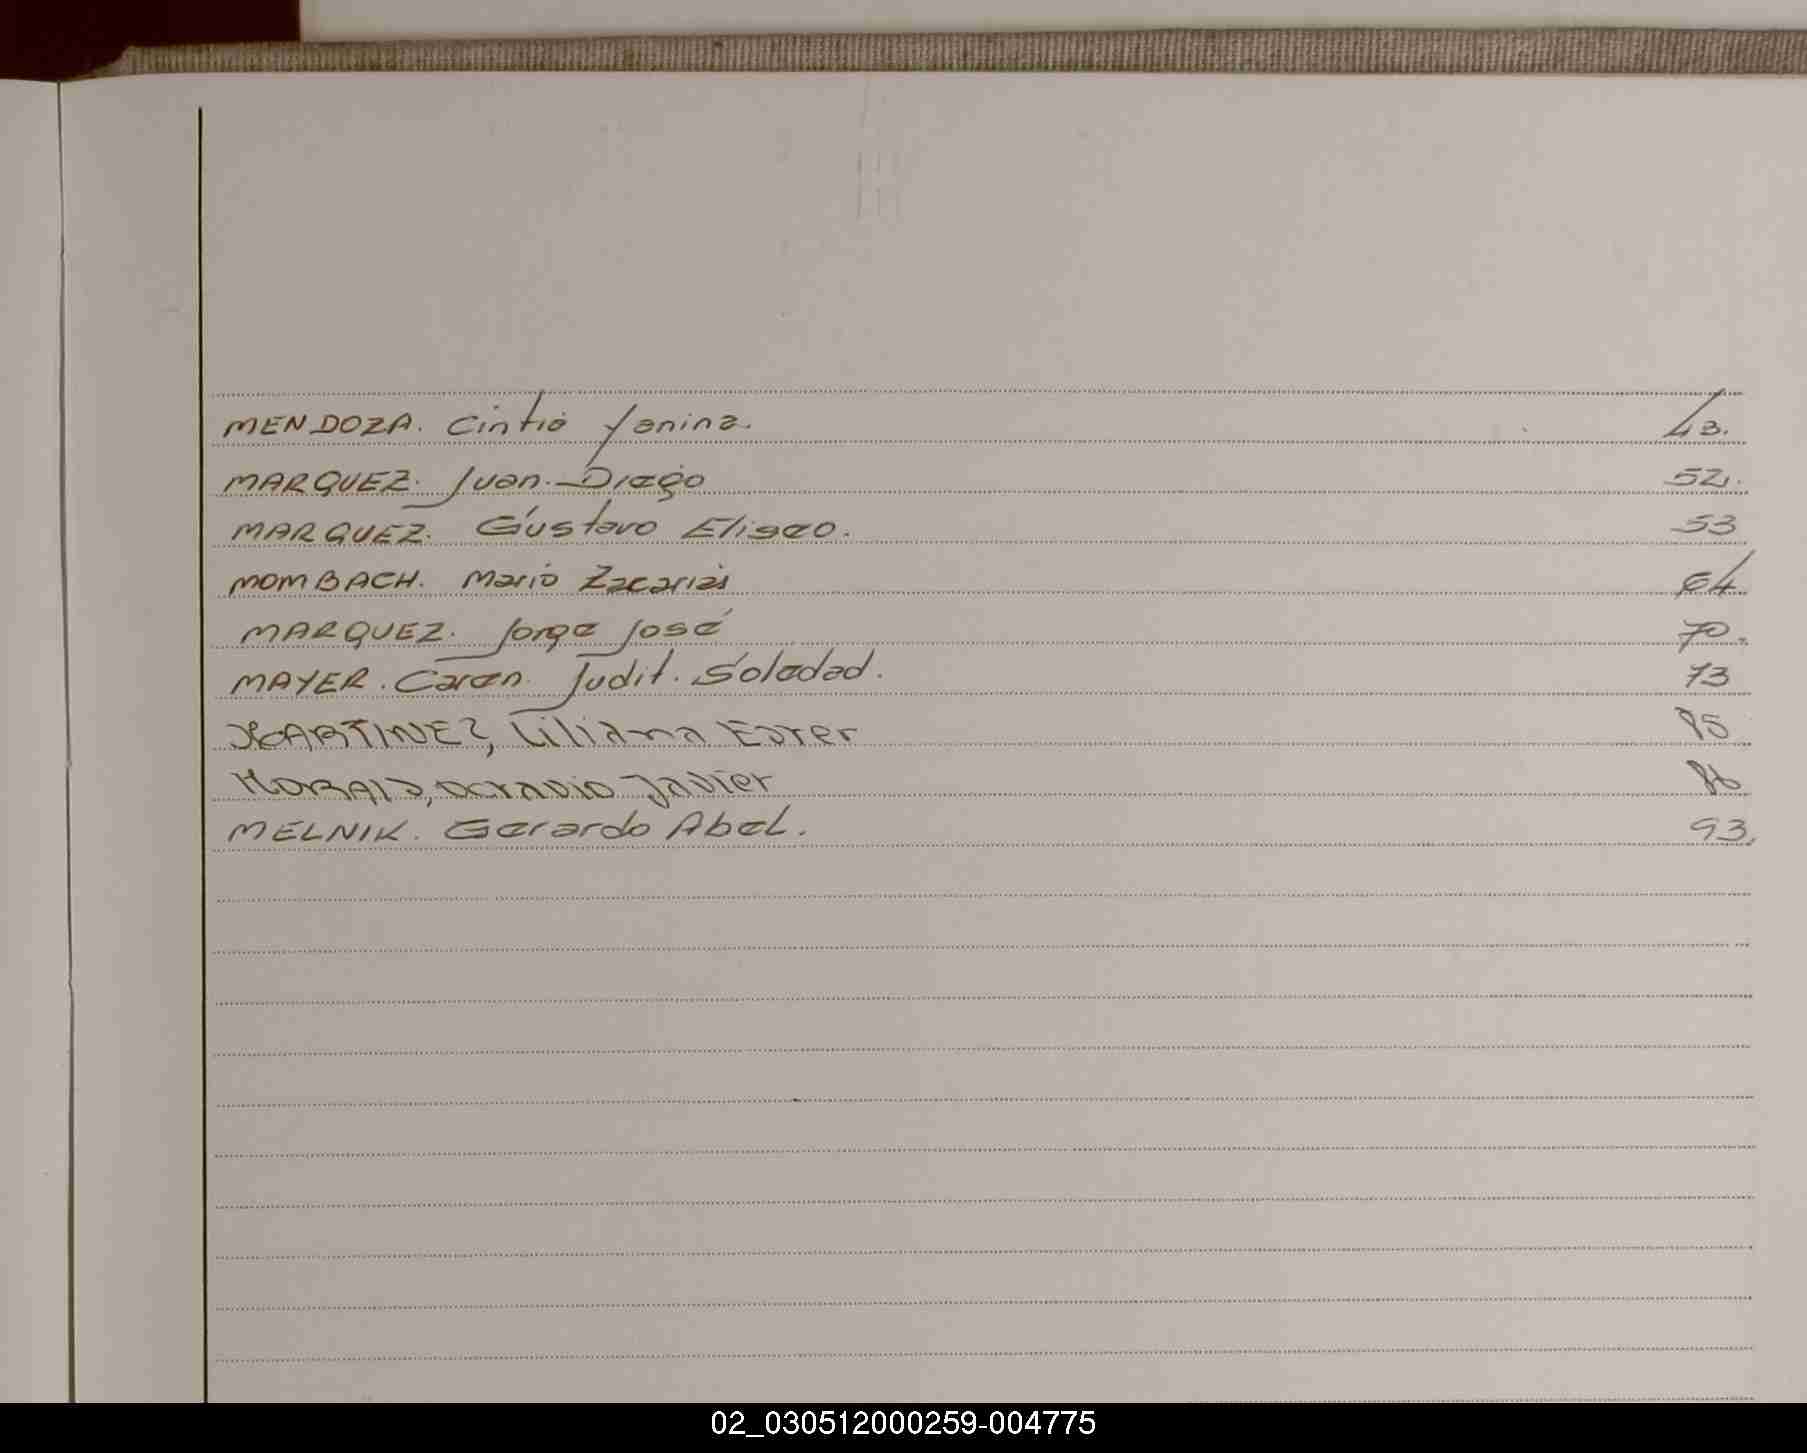 MENDOZA. Cintia Yanina. 43.
MARQUEZ. Juan Diego 52.
MARQUEZ. Gustavo Eliseo. 53
MOMBACH. Mario Zacarias 64
MARQUEZ. Jorge José 70.
MAYER. Caren Judit. Soledad. 73
MARTINEZ, Liliana Ester 85
Javier 86
MELNIK. Gerardo Abel. 93.
02_030512000259-004775